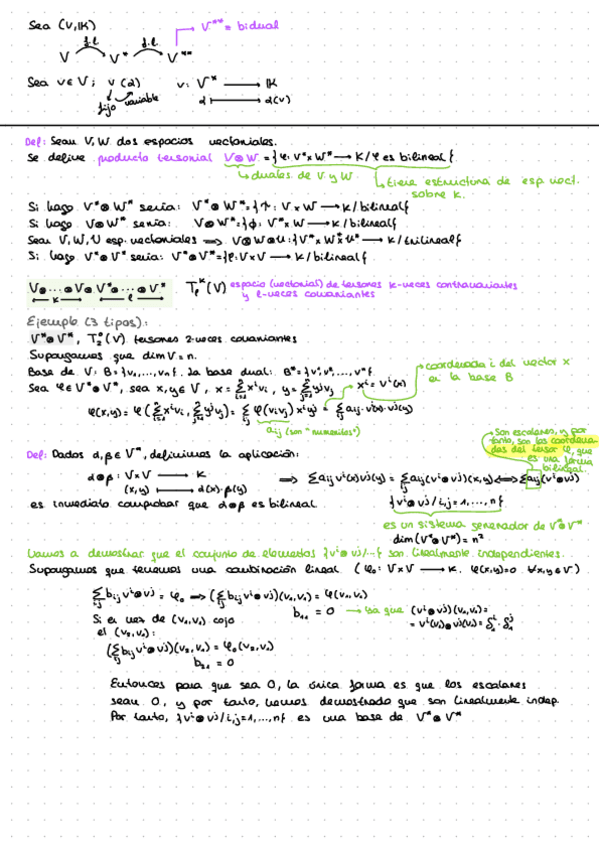 Sea (V,K)
V** = bidual
f.l. f.l.
V V* V**
Sea v ∈ V ; v (α) v: V* ⟶ K
fijo variable α ⟼ α(v)
Def: Sean V, W dos espacios vectoriales.
Se define producto tensorial V⊗W = {φ: V*×W* ⟶ K / φ es bilineal}
duales de V y W
tiene estructura de esp. vect. sobre K.
Si hago V*⊗W* sería: V*⊗W* = {↑: V×W ⟶ K / bilineal}
Si hago V⊗W* sería: V⊗W* = {ϕ: V*×W ⟶ K / bilineal}
Sean V, W, U esp. vectoriales ⟹ V⊗W⊗U: {V*×W*×U* ⟶ K / trilineal}
Si hago V*⊗V* sería: V*⊗V* = {φ: V×V ⟶ K / bilineal}
V⊗...⊗V⊗V*⊗...⊗V* T^k_l (V) espacio (vectorial) de tensores k-veces contravariantes
k l y l-veces covariantes
Ejemplo (3 tipos):
V*⊗V*, T^0_2 (V) tensores 2-veces covariantes
Supongamos que dim V = n.
Base de V: B = {v₁,...,vₙ}. La base dual: B* = {v¹, v²,..., vⁿ}
Sea φ ∈ V*⊗V*, sea x,y ∈ V, x = Σ xⁱvᵢ, y = Σ yʲvⱼ xⁱ = vⁱ(x)
coordenada i del vector x
en la base B
φ(x,y) = φ(Σ xⁱvᵢ, Σ yʲvⱼ) = Σ φ(vᵢ,vⱼ) xⁱyʲ = Σ aᵢⱼ·vⁱ(x)·vʲ(y)
aᵢⱼ (son "numeritos")
Son escalares, y por
tanto, son las coordena-
das del tensor φ, que
es una forma
bilineal.
Def: Dados α, β ∈ V*, definimos la aplicación:
α⊗β: V×V ⟶ K ⟹ Σ aᵢⱼ vⁱ(x)vʲ(y) = Σ aᵢⱼ(vⁱ⊗vʲ)(x,y) ⟺ Σ aᵢⱼ(vⁱ⊗vʲ)
(x,y) ⟼ α(x)·β(y)
{vⁱ⊗vʲ / i,j = 1,...,n}
es inmediato comprobar que α⊗β es bilineal
es un sistema generador de V*⊗V*
dim(V*⊗V*) = n²
Vamos a demostrar que el conjunto de elementos {vⁱ⊗vʲ/...} son linealmente independientes.
Supongamos que tenemos una combinación lineal (φ₀: V×V ⟶ K. φ(x,y)=0 ∀x,y ∈ V)
Σ bᵢⱼ vⁱ⊗vʲ = φ₀ ⟹ (Σ bᵢⱼ vⁱ⊗vʲ)(v₁,v₁) = φ(v₁,v₁)
Si en vez de (v₁,v₁) cojo b₁₁ = 0 ⟶ ya que (vⁱ⊗vʲ)(v₁,v₁) =
el (v₂,v₁): = vⁱ(v₁)⊗vʲ(v₁) = δⁱ₁·δʲ₁
(Σ bᵢⱼ vⁱ⊗vʲ)(v₂,v₁) = φ₀(v₂,v₁)
b₂₁ = 0
Entonces para que sea 0, la única forma es que los escalares
sean 0, y por tanto, hemos demostrado que son linealmente indep.
Por tanto, {vⁱ⊗vʲ / i,j = 1,...,n} es una base de V*⊗V*